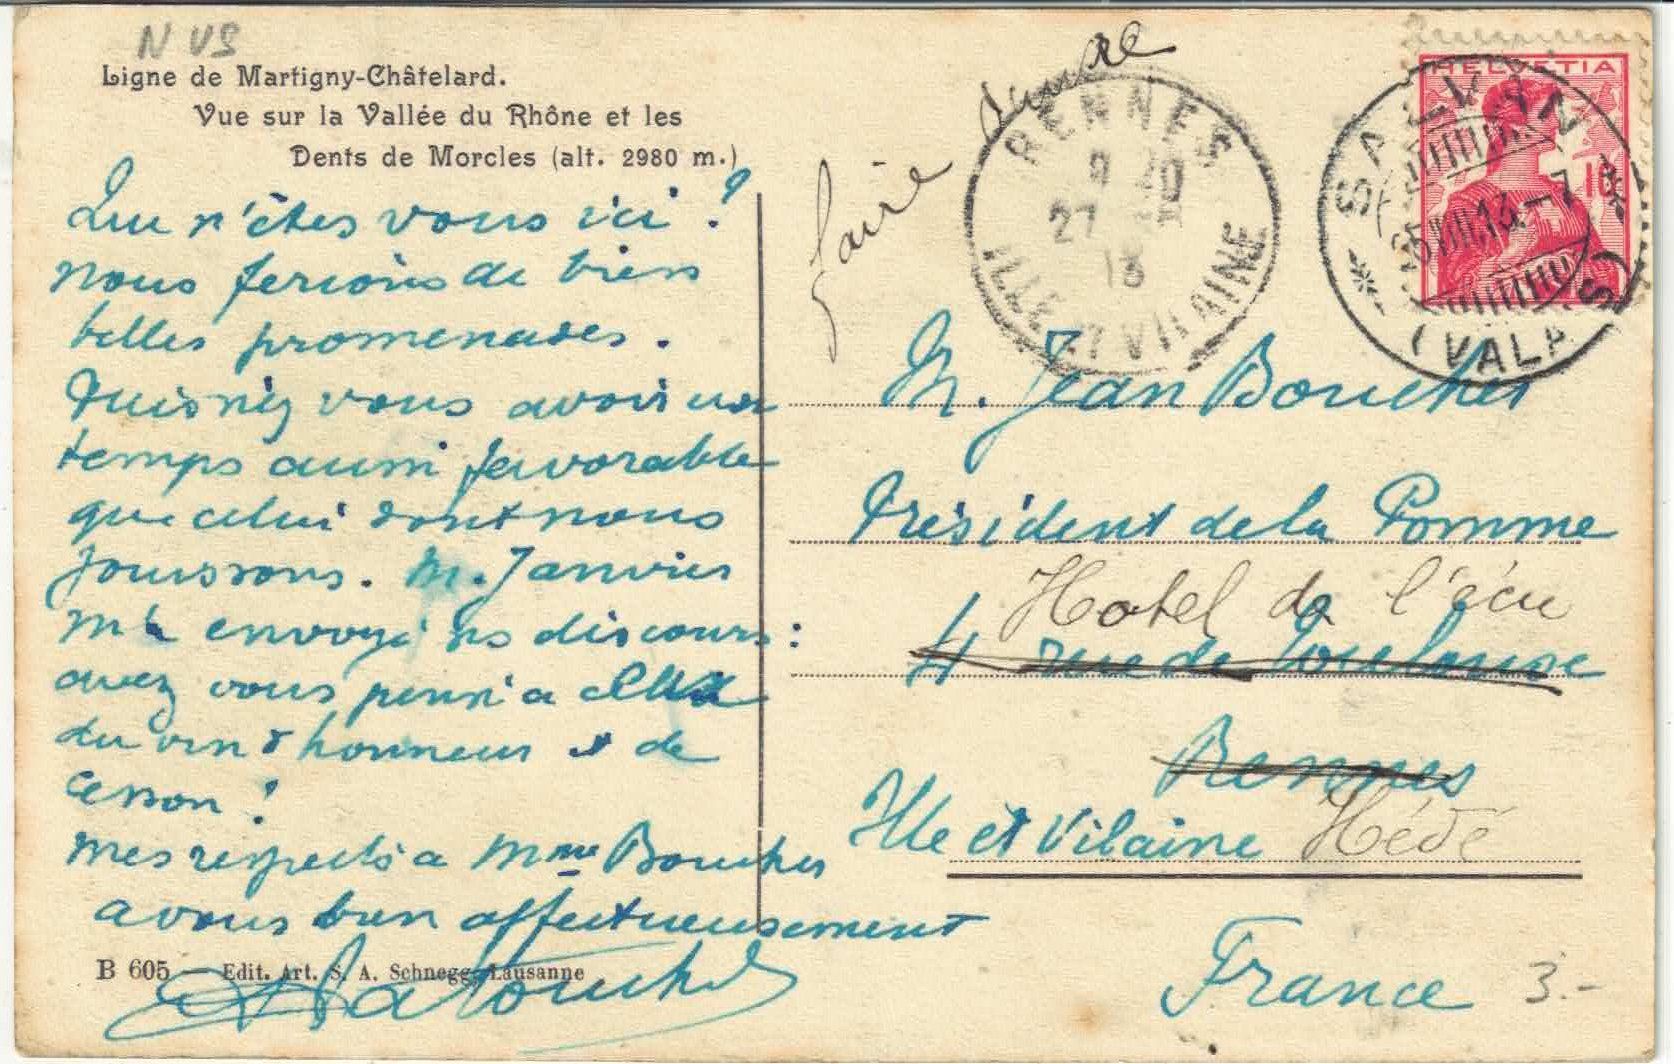 N VS
Ligne de Martigny-Châtelard.
Vue sur la Vallée du Rhône et les
Dents de Morcles (alt. 2980 m.)
Que n'êtes vous ici ?
nous ferions de bien
belles promenades.
Puissiez vous avoir un
temps aussi favorable
que celui dont nous
jouissons. M. Janvier
m'a envoyé ses discours :
avez vous pensé a celui
du vin d honneur et de
Cesson ?
mes respects a Mme Boucher
a vous bien affectueusement
B 605 — Edit. Art. S. A. Schnegg, Lausanne
faire suivre
RENNES
27
13
ILLE ET VILAINE
HELVETIA
10
SALVAN
VIII.13.-7
(VALAIS)
M. Jean Boucher
Président de la Pomme
Hotel de l'écu
4 rue de Toulouse
Rennes
Ille et Vilaine Hédé
France
3.-